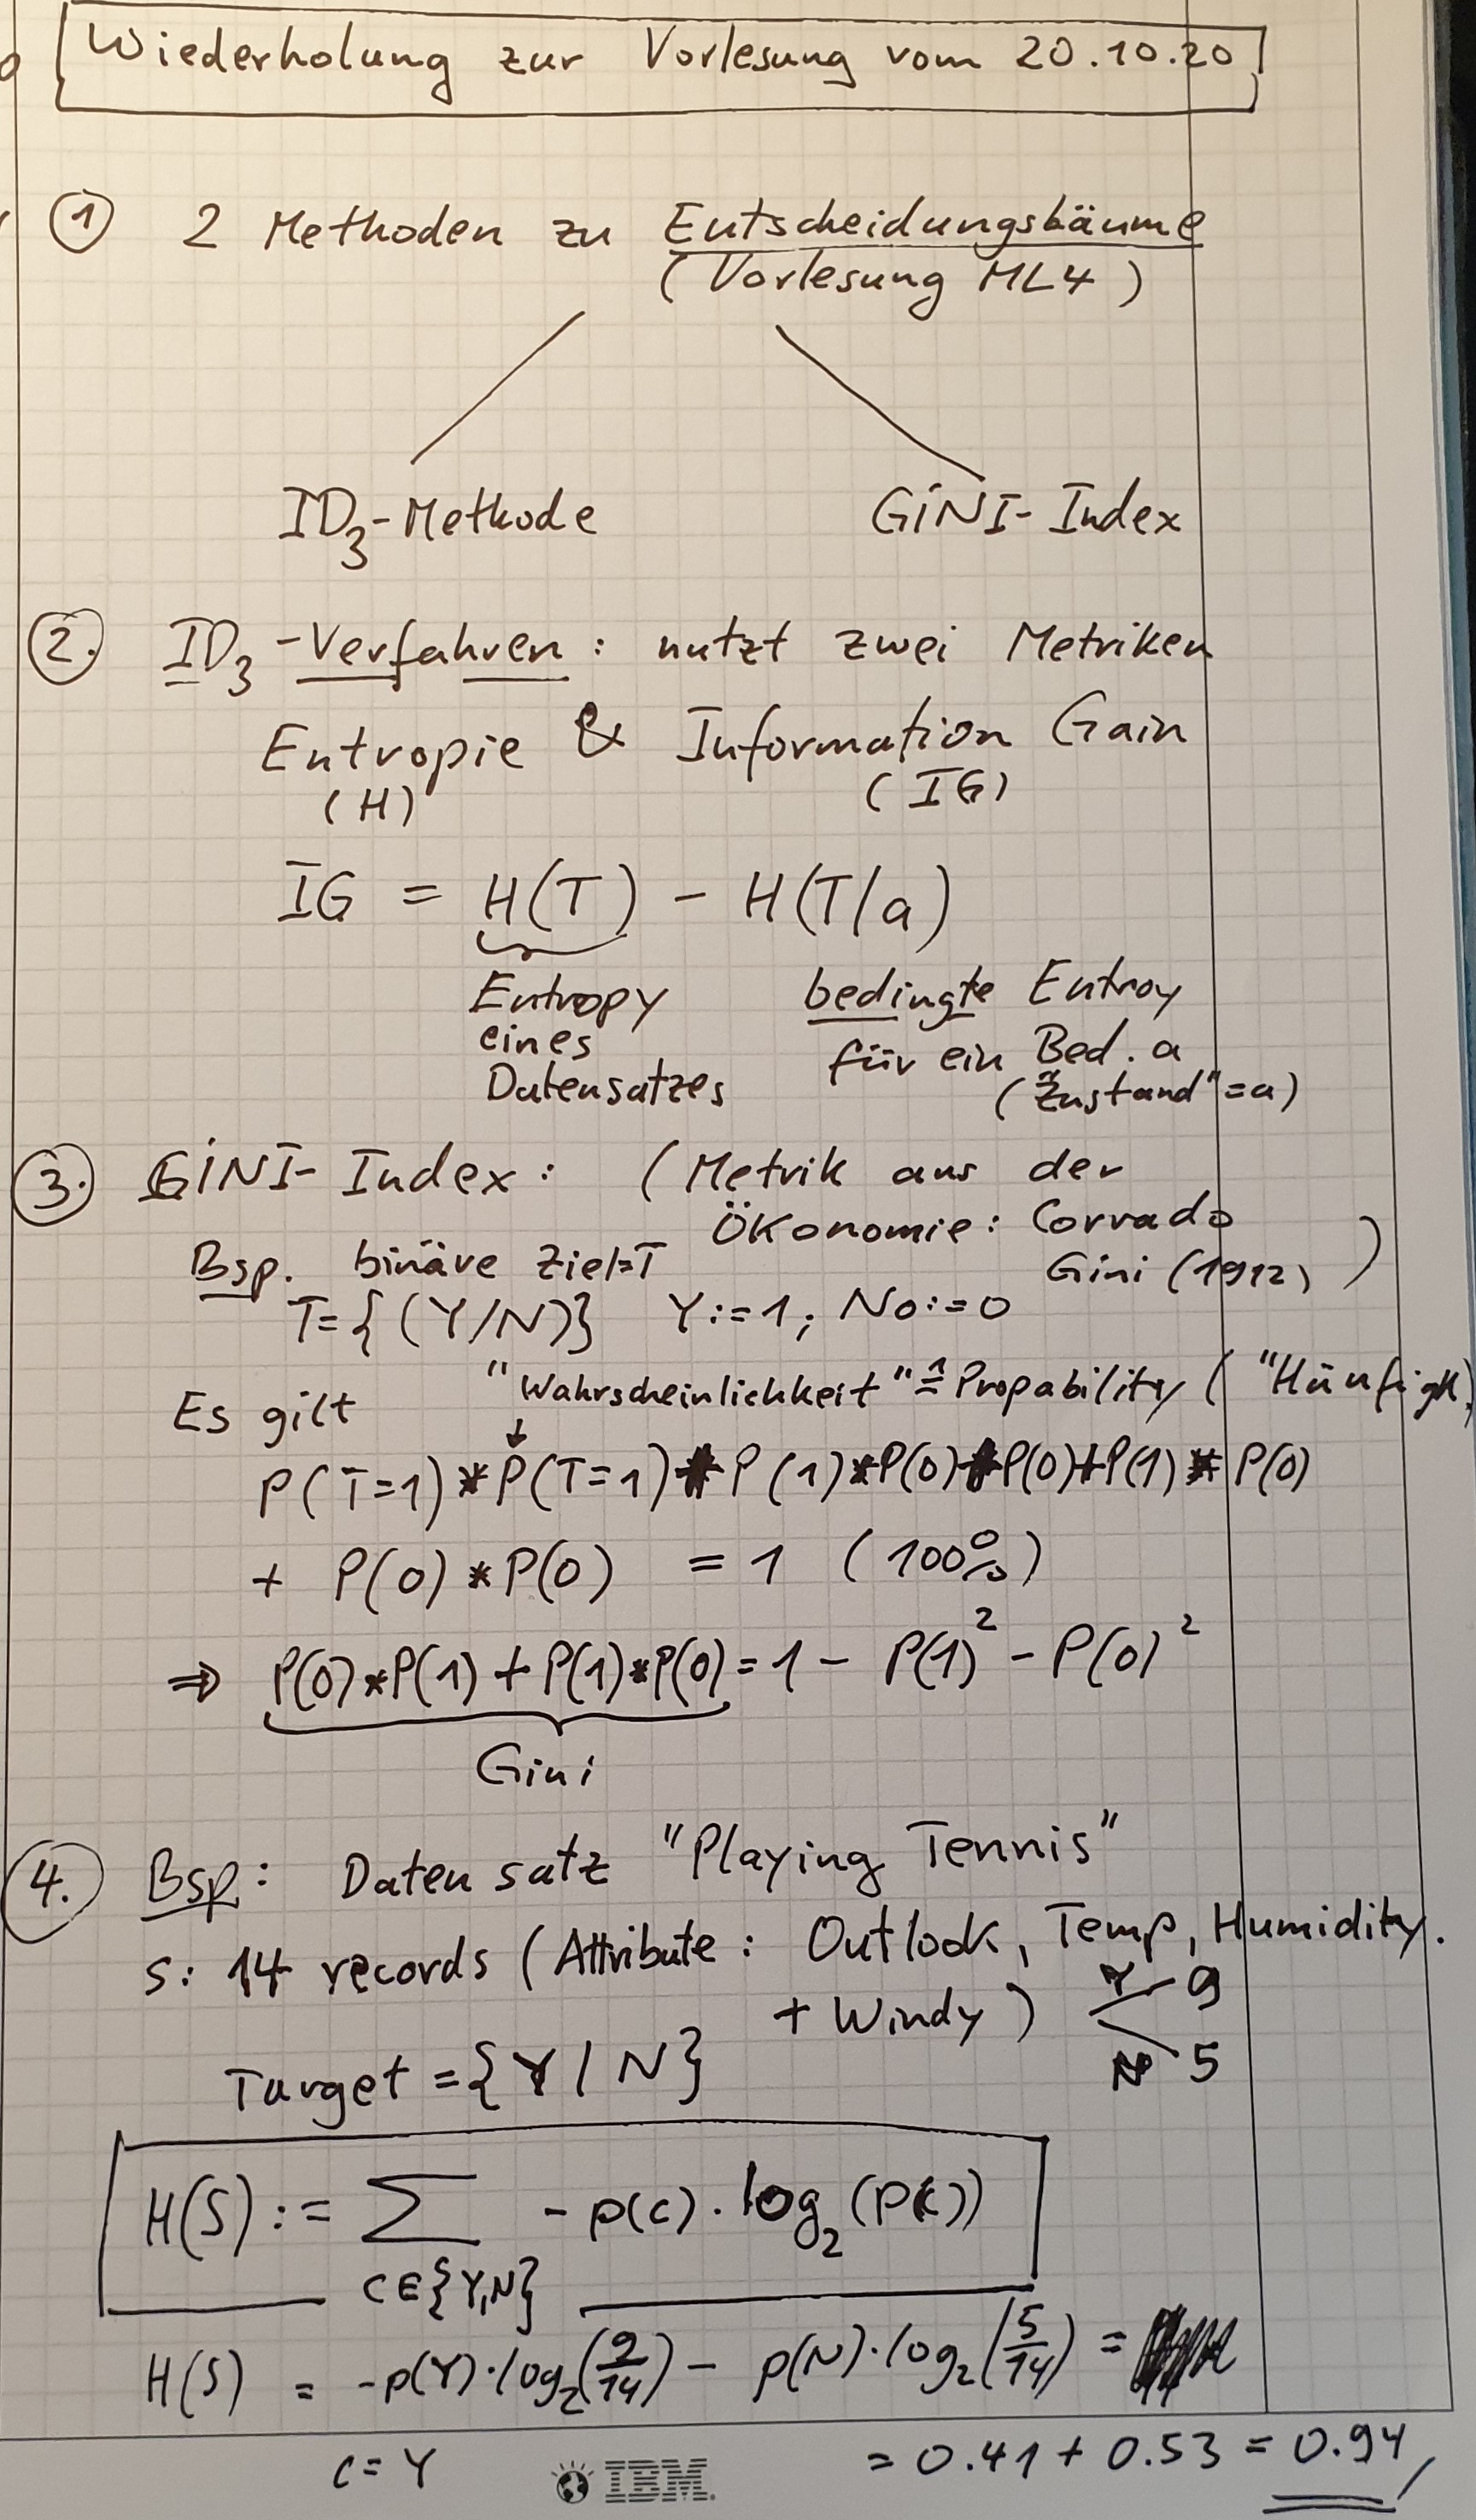 Wiederholung zur Vorlesung vom 20.10.20
① 2 Methoden zu Entscheidungsbäume
(Vorlesung ML4)
ID3-Methode GiNI-Index
②. ID3-Verfahren: nutzt zwei Metriken
Entropie & Information Gain
(H) (IG)
IG = H(T) - H(T/a)
Entropy bedingte Entroy
eines für ein Bed. a
Datensatzes ("Zustand"=a)
③. GiNI-Index: (Metrik aus der
Ökonomie: Corrado
Bsp. binäre Ziel=T Gini (1912) )
T={(Y/N)} Y:=1; No:=0
"Wahrscheinlichkeit" ≙ Propability ("Häufigk.
Es gilt
P(T=1) * P(T=1) + P(1)*P(0) + P(0) + P(1) * P(0)
+ P(0) * P(0) = 1 (100%)
⇒ P(0)*P(1) + P(1)*P(0) = 1 - P(1)² - P(0)²
Gini
④. Bsp: Datensatz "Playing Tennis"
S: 14 records (Attribute: Outlook, Temp, Humidity.
+ Windy) Y 9
Target = {Y/N} N 5
H(S) := ∑ - p(c) · log₂(p(c))
C∈{Y,N}
H(S) = -p(Y)·log₂(9/14) - p(N)·log₂(5/14) =
c=Y = 0.41 + 0.53 = 0.94
IBM.